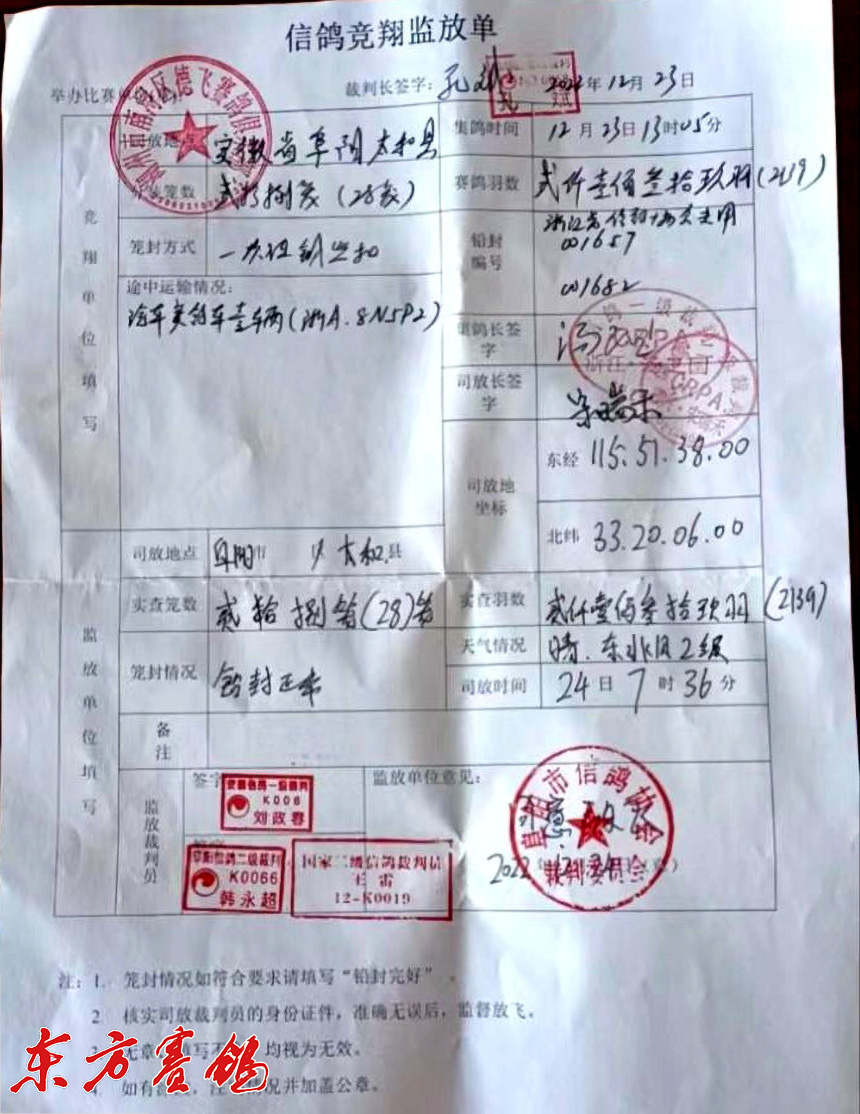 信鸽竞翔监放单
举办比赛单位
裁判长签字:
2022年12月23日
司放地点 安徽省阜阳太和县
集鸽时间 12月23日13时05分
笼数 贰拾捌笼(28笼)
赛鸽羽数 贰仟壹佰叁拾玖羽(2139)
竞翔单位填写
笼封方式 一次性钢丝扣
铅封编号
001657
001682
途中运输情况:
汽车赛鸽车壹车辆(浙A.8N5P2)
集鸽长签字
司放长签字
宋瑞禾
司放地坐标
东经 115.51.38.00
北纬 33.20.06.00
司放地点 阜阳市 太和县
实查笼数 贰拾捌笼(28)笼
实查羽数 贰仟壹佰叁拾玖羽(2139)
监放单位填写
笼封情况 铅封正常
天气情况 晴.东北风2级
司放时间 24日7时36分
备注
监放裁判员
签字
监放单位意见:
K006
刘政春
阜阳信鸽二级裁判
K0066
韩永超
国家二级信鸽裁判员
王雷
12-K0019
阜阳市信鸽协会
裁判委员会
2022年
注: 1. 笼封情况如符合要求请填写“铅封完好”。
2 核实司放裁判员的身份证件，准确无误后，监督放飞。
均视为无效。
情况并加盖公章。
东方赛鸽